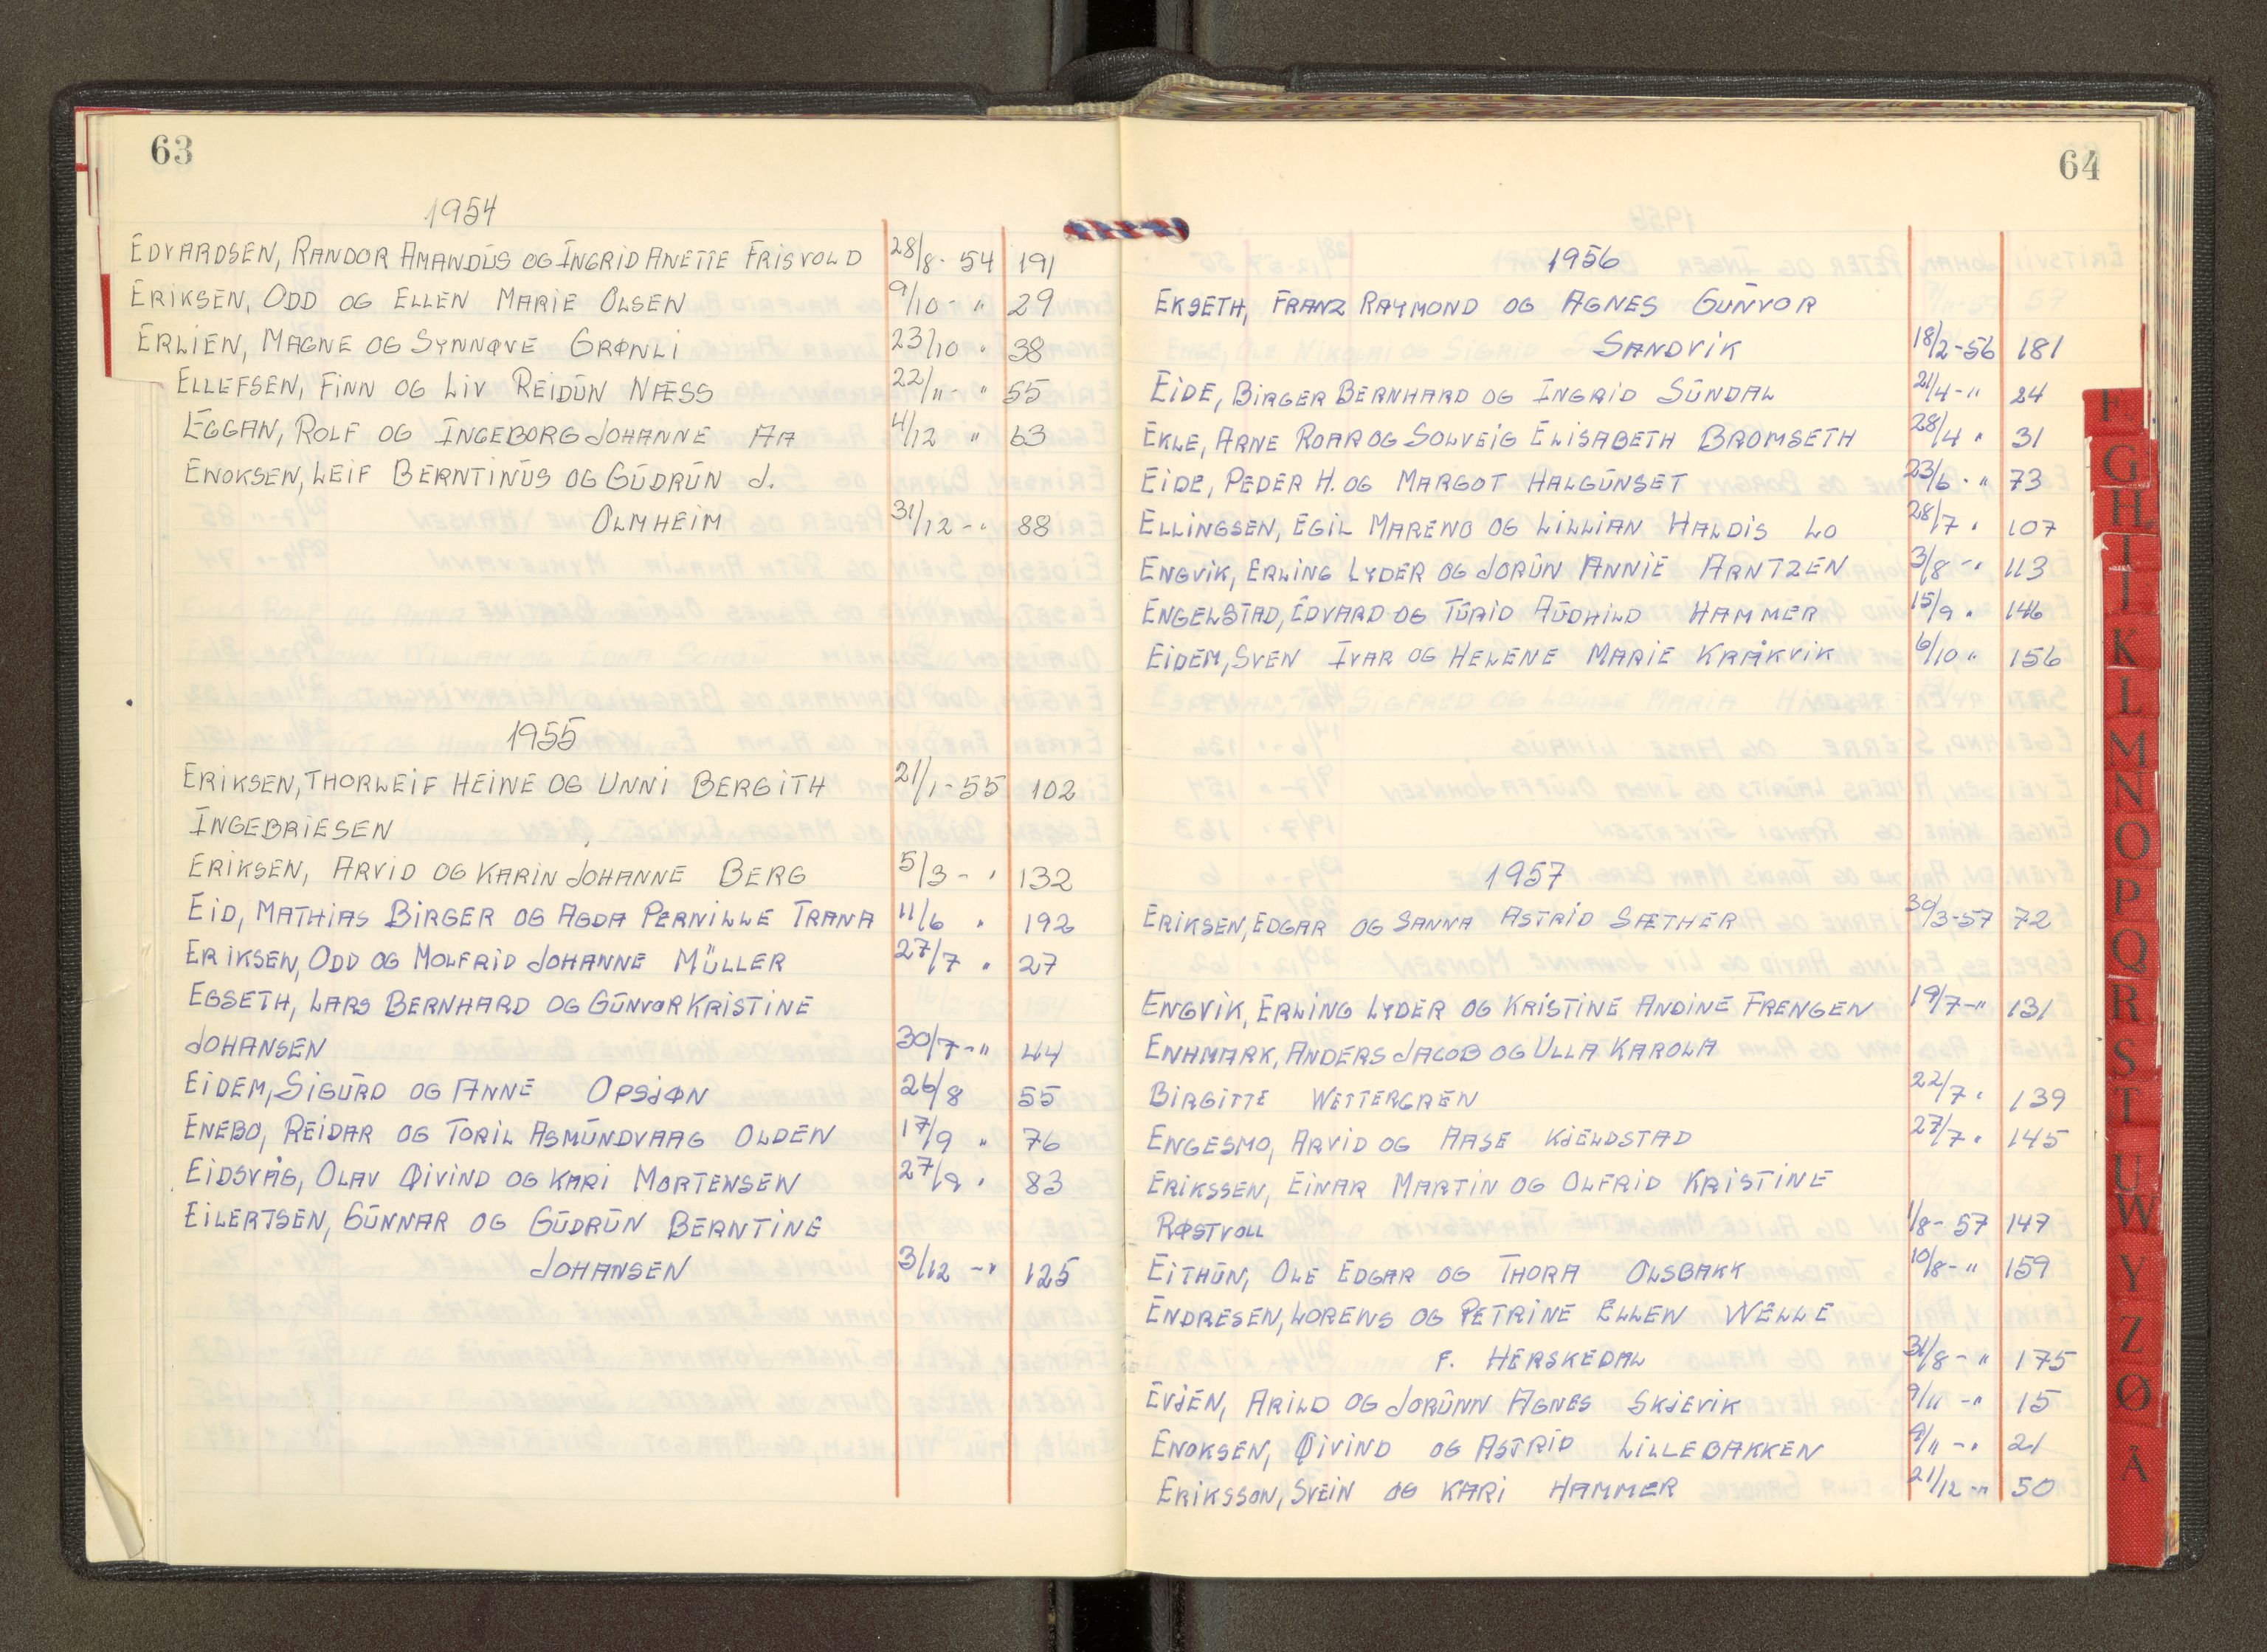 63
1954
EDVARDSEN, RANDOR AMANDUS OG INGRID ANETTE FRISVOLD 28/8- 54 191
ERIKSEN, ODD OG ELLEN MARIE OLSEN 9/10- " 29
ERLIEN, MAGNE OG SYNNØVE GRØNLI 23/10 " 38
ELLEFSEN, FINN OG LIV REIDUN NÆSS 22/11- " 55
EGGAN, ROLF OG INGEBORG JOHANNE AA 4/12 " 63
ENOKSEN, LEIF BERNTINUS OG GUDRUN J.
OLMHEIM 31/12-" 88
1955
ERIKSEN, THORLEIF HEINE OG UNNI BERGITH 21/1-55 102
INGEBRIESEN
ERIKSEN, ARVID OG KARIN JOHANNE BERG 5/3- " 132
EID, MATHIAS BIRGER OG AGDA PERNILLE TRANA 11/6 " 192
ERIKSEN, ODD OG MOLFRID JOHANNE MÜLLER 27/7 " 27
EGSETH, LARS BERNHARD OG GUNVOR KRISTINE
JOHANSEN 30/7-" 44
EIDEM, SIGURD OG ANNE OPSJØN 26/8 55
ENEBO, REIDAR OG TORIL ASMUNDVAAG OLDEN 17/9 " 76
EIDSVÅG, OLAV ØIVIND OG KARI MORTENSEN 27/9 " 83
EILERTSEN, GUNNAR OG GUDRUN BERNTINE
JOHANSEN 3/12-" 125
64
1956
EKSETH, FRANZ RAYMOND OG AGNES GUNVOR
SANDVIK 18/2-56 181
EIDE, BIRGER BERNHARD OG INGRID SUNDAL 21/4-" 24
EKLE, ARNE ROAR OG SOLVEIG ELISABETH BROMSETH 28/4 " 31
EIDE, PEDER H. OG MARGOT HALGUNSET 23/6-" 73
ELLINGSEN, EGIL MARENO OG LILLIAN HALDIS LO 28/7 " 107
ENGVIK, ERLING LYDER OG JORUN ANNIE ARNTZEN 3/8-" 113
ENGELSTAD, EDVARD OG TURID AUDHILD HAMMER 15/9 " 146
EIDEM, SVEN IVAR OG HELENE MARIE KRÅKVIK 6/10 " 156
1957
ERIKSEN, EDGAR OG SANNA ASTRID SÆTHER 30/3-57 72
ENGVIK, ERLING LYDER OG KRISTINE ANDINE FRENGEN 19/7-" 131
ENHMARK, ANDERS JACOB OG ULLA KAROLA
BIRGITTE WETTERGREN 22/7 " 139
ENGESMO, ARVID OG AASE KJELDSTAD 27/7 " 145
ERIKSSEN, EINAR MARTIN OG OLFRID KRISTINE
RØSTVOLL 1/8-57 147
EITHUN, OLE EDGAR OG THORA OLSBAKK 10/8-" 159
ENDRESEN, LORENS OG PETRINE ELLEN WELLE
F. HERSKEDAL 31/8-" 175
EVJEN, ARILD OG JORUNN AGNES SKJEVIK 9/11-" 15
ENOKSEN, ØIVIND OG ASTRID LILLEBAKKEN 9/11-" 21
ERIKSSON, SVEIN OG KARI HAMMER 21/12-" 50
F
G
H
I
J
K
L
M
N
O
P
Q
R
S
T
U
W
Y
Z
Ø